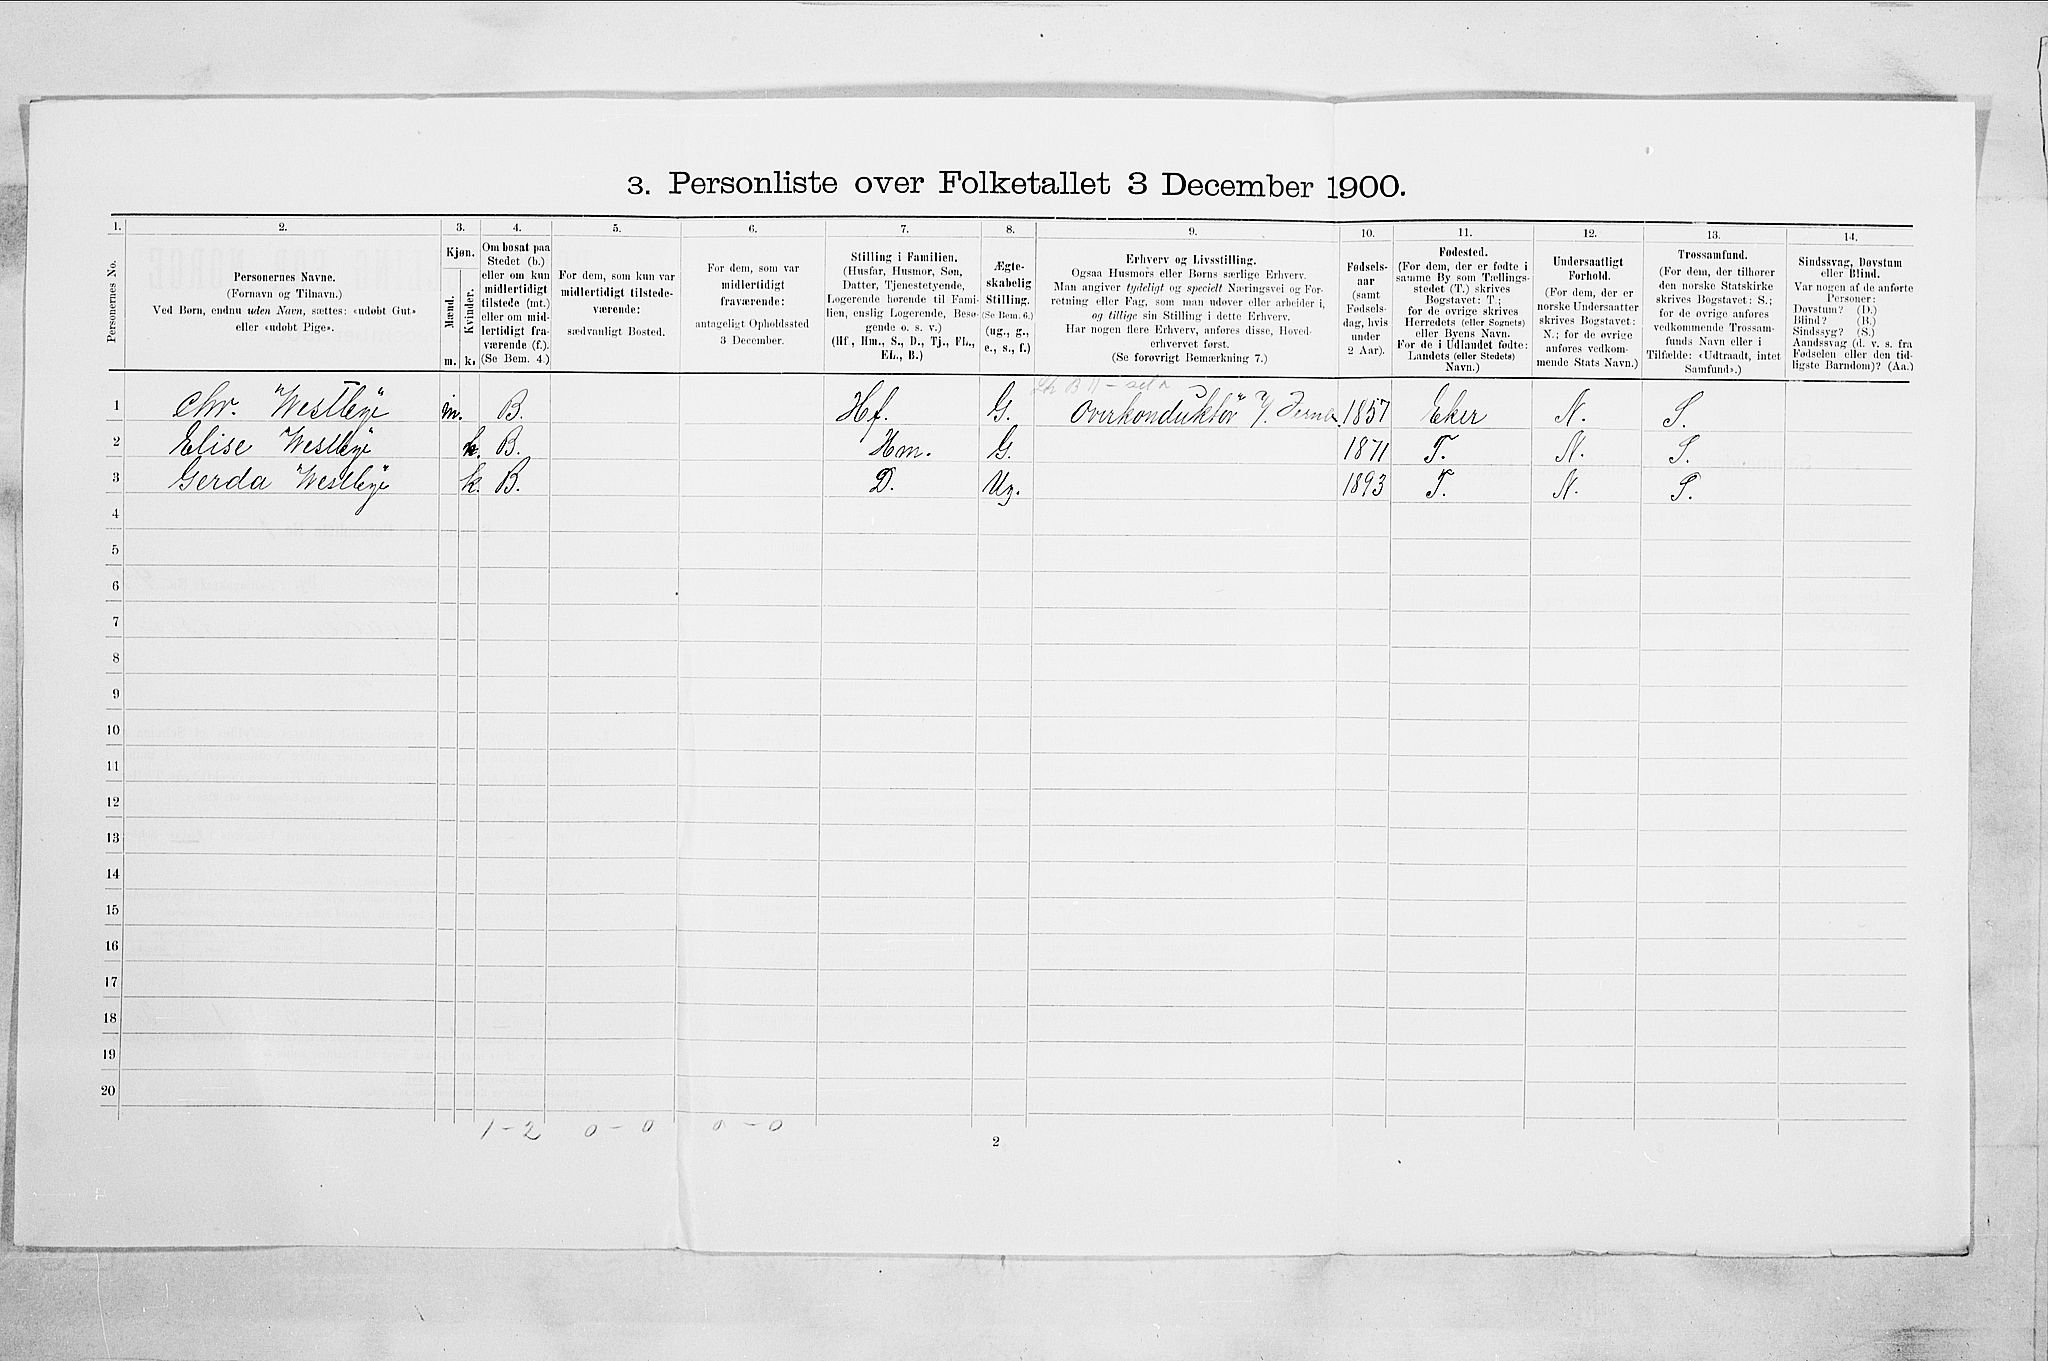 3. Personliste over Folketallet 3 December 1900.
1. 2. 3. 4. 5. 6. 7. 8. 9. 10. 11. 12. 13. 14.
Personernes No.
Personernes Navne.
(Fornavn og Tilnavn.)
Ved Børn, endnu uden Navn, sættes: «udøbt Gut»
eller «udøbt Pige».
Kjøn.
Mænd.
Kvinder.
m. k.
Om bosat paa
Stedet (b.)
eller om kun
midlertidigt
tilstede (mt.)
eller om mid-
lertidigt fra-
værende (f.).
(Se Bem. 4.)
For dem, som kun var
midlertidigt tilstede-
værende:
sædvanligt Bosted.
For dem, som var
midlertidigt
fraværende:
antageligt Opholdssted
3 December.
Stilling i Familien.
(Husfar, Husmor, Søn,
Datter, Tjenestetyende,
Logerende hørende til Fami-
lien, enslig Logerende, Besø-
gende o. s. v.)
(Hf., Hm., S., D., Tj., FL.,
EL., B.)
Ægte-
skabelig
Stilling.
(Se Bem. 6.)
(ug., g.,
e., s., f.)
Erhverv og Livsstilling.
Ogsaa Husmors eller Børns særlige Erhverv.
Man angiver tydeligt og specielt Næringsvei og For-
retning eller Fag, som man udøver eller arbeider i,
og tillige sin Stilling i dette Erhverv.
Har nogen flere Erhverv, anføres disse, Hoved-
erhvervet først.
(Se forøvrigt Bemærkning 7.)
Fødsels-
aar
(samt
Fødsels-
dag, hvis
under
2 Aar).
Fødested.
(For dem, der er fødte i
samme By som Tællings-
stedet (T.) skrives
Bogstavet: T.;
for de øvrige skrives
Herredets (eller Sognets)
eller Byens Navn.
For de i Udlandet fødte:
Landets (eller Stedets)
Navn.)
Undersaatligt
Forhold.
(For dem, der er
norske Undersaatter
skrives Bogstavet:
N.; for de øvrige
anføres vedkom-
mende Stats Navn.)
Trossamfund.
(For dem, der tilhører
den norske Statskirke
skrives Bogstavet: S.;
for de øvrige anføres
vedkommende Trossam-
funds Navn eller i
Tilfælde: «Udtraadt, intet
Samfund».)
Sindssvag, Døvstum
eller Blind.
Var nogen af de anførte
Personer:
Døvstum? (D.)
Blind? (B.)
Sindssyg? (S.)
Aandssvag (d. v. s. fra
Fødselen eller den tid-
ligste Barndom)? (Aa.)
1 Chr. Westbye m. B. Hf. G. Overkonduktør 1857 Eker N. S.
2 Elise Westbye k. B. Hm. G. 1871 T. N. S.
3 Gerda Westbye k. B. D. Ug. 1893 T. N. S.
4
5
6
7
8
9
10
11
12
13
14
15
16
17
18
19
20
1 - 2 0 - 0 0 - 0
2